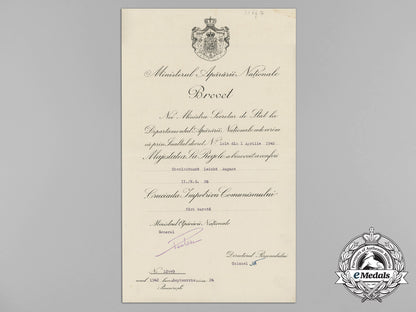 Ministerul Apărării Naționale
Brevet
Noi Ministru Secretar de Stat la
Departamentul Apărării Naționale adeverim
că prin Înaltul decret Nº 1014 din 1 Aprilie 1942
Majestatea Sa Regele a binevoit a conferi
Oberleutnant Leicht August
Cruciada Împotriva Comunismului
fără baretă
Ministrul Apărării Naționale
General
Directorul Personalului
Colonel
anul 1942 luna Septembrie ziua 24
București
eMedals